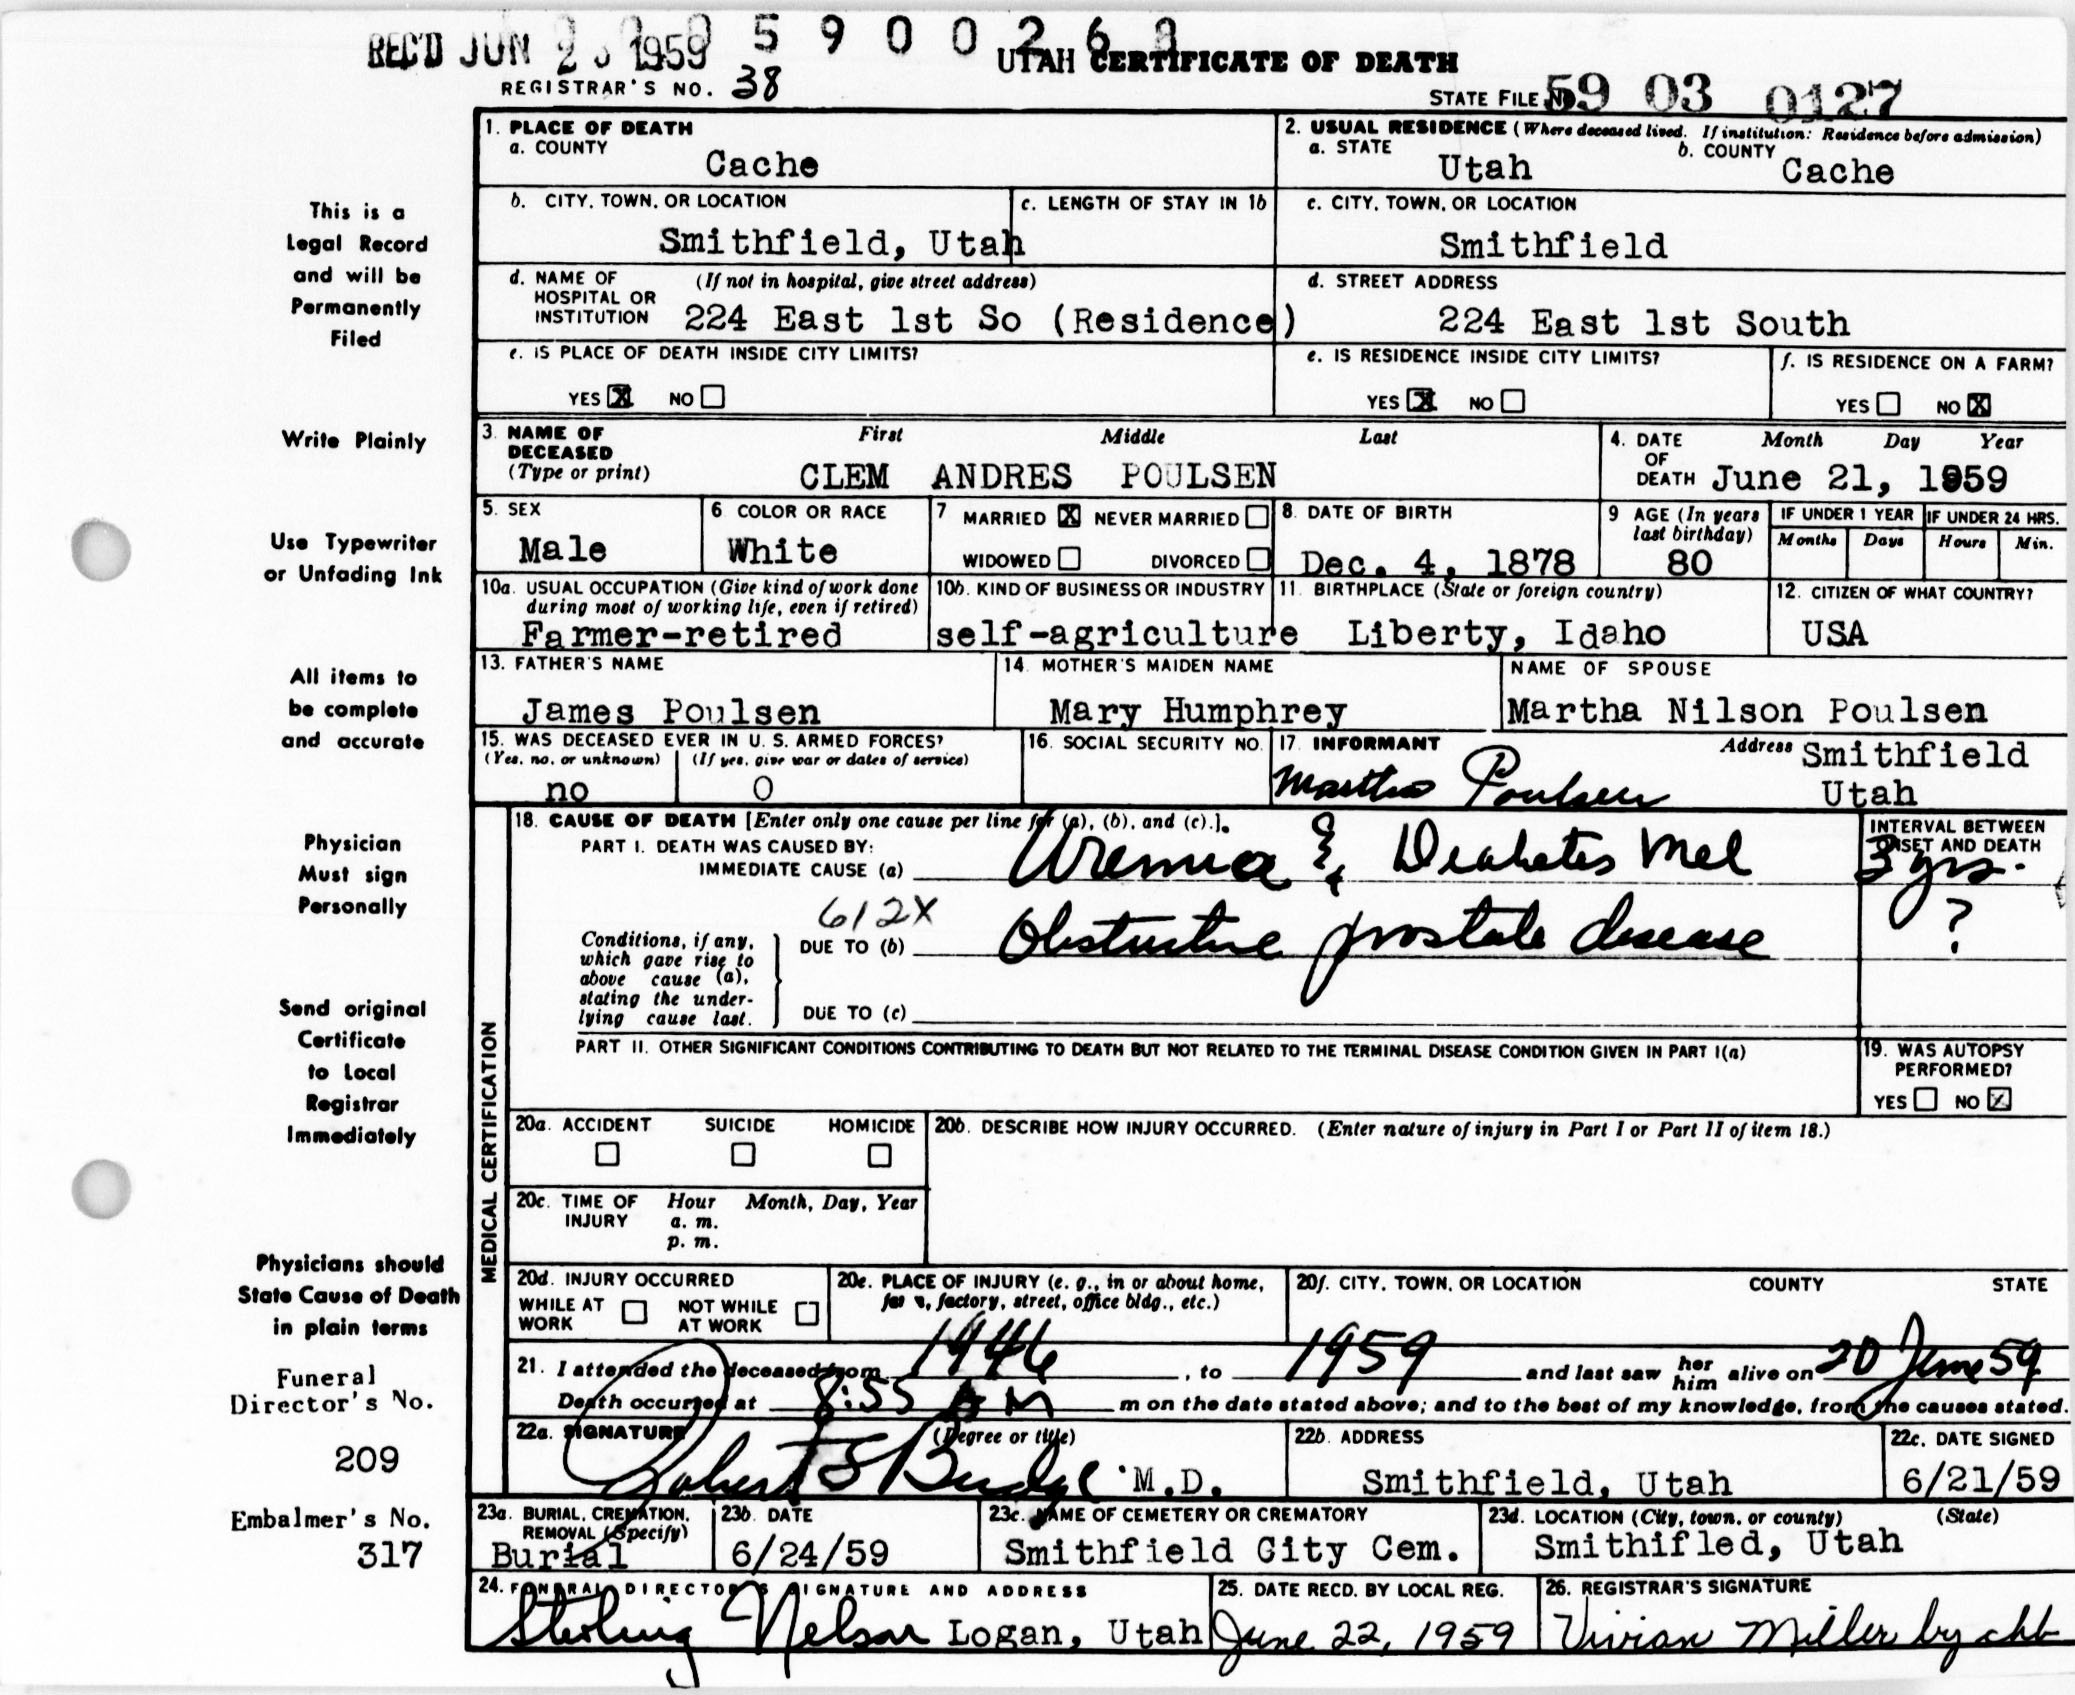 REC'D JUN 2 1959 5 9 0 0 2 6
UTAH CERTIFICATE OF DEATH
REGISTRAR'S NO. 38
STATE FILE NO 59 03 0127
1. PLACE OF DEATH
a. COUNTY
Cache
2. USUAL RESIDENCE (Where deceased lived. If institution: Residence before admission)
a. STATE
Utah
b. COUNTY
Cache
b. CITY, TOWN, OR LOCATION
Smithfield, Utah
c. LENGTH OF STAY IN 1b
c. CITY, TOWN, OR LOCATION
Smithfield
d. NAME OF HOSPITAL OR INSTITUTION
(If not in hospital, give street address)
224 East 1st So (Residence)
d. STREET ADDRESS
224 East 1st South
e. IS PLACE OF DEATH INSIDE CITY LIMITS?
YES X NO
e. IS RESIDENCE INSIDE CITY LIMITS?
YES X NO
f. IS RESIDENCE ON A FARM?
YES NO X
3. NAME OF DECEASED
(Type or print)
First Middle Last
CLEM ANDRES POULSEN
4. DATE OF DEATH
Month Day Year
June 21, 1959
5. SEX
Male
6 COLOR OR RACE
White
7 MARRIED X NEVER MARRIED
WIDOWED DIVORCED
8. DATE OF BIRTH
Dec. 4, 1878
9 AGE (In years last birthday)
80
IF UNDER 1 YEAR
Months Days
IF UNDER 24 HRS.
Hours Min.
10a. USUAL OCCUPATION (Give kind of work done
during most of working life, even if retired)
Farmer-retired
10b. KIND OF BUSINESS OR INDUSTRY
self-agriculture
11. BIRTHPLACE (State or foreign country)
Liberty, Idaho
12. CITIZEN OF WHAT COUNTRY?
USA
13. FATHER'S NAME
James Poulsen
14. MOTHER'S MAIDEN NAME
Mary Humphrey
NAME OF SPOUSE
Martha Nilson Poulsen
15. WAS DECEASED EVER IN U. S. ARMED FORCES?
(Yes, no, or unknown) (If yes, give war or dates of service)
no 0
16. SOCIAL SECURITY NO.
17. INFORMANT
Martha Poulsen
Address Smithfield
Utah
MEDICAL CERTIFICATION
18. CAUSE OF DEATH [Enter only one cause per line for (a), (b), and (c).]
PART I. DEATH WAS CAUSED BY:
IMMEDIATE CAUSE (a) Uremia & Diabetes Mel
INTERVAL BETWEEN
ONSET AND DEATH
3 yrs.
612X
Conditions, if any,
which gave rise to
above cause (a),
stating the under-
lying cause last.
DUE TO (b) Obstructive prostate disease
?
DUE TO (c)
PART II. OTHER SIGNIFICANT CONDITIONS CONTRIBUTING TO DEATH BUT NOT RELATED TO THE TERMINAL DISEASE CONDITION GIVEN IN PART I(a)
19. WAS AUTOPSY
PERFORMED?
YES NO X
20a. ACCIDENT SUICIDE HOMICIDE
20b. DESCRIBE HOW INJURY OCCURRED. (Enter nature of injury in Part I or Part II of item 18.)
20c. TIME OF INJURY
Hour Month, Day, Year
a. m.
p. m.
20d. INJURY OCCURRED
WHILE AT WORK NOT WHILE AT WORK
20e. PLACE OF INJURY (e. g., in or about home,
farm, factory, street, office bldg., etc.)
20f. CITY, TOWN, OR LOCATION COUNTY STATE
21. I attended the deceased from 1946, to 1959 and last saw her him alive on 20 June 59
Death occurred at 8:55 A M m on the date stated above; and to the best of my knowledge, from the causes stated.
22a. SIGNATURE (Degree or title)
Robert S Budge M.D.
22b. ADDRESS
Smithfield, Utah
22c. DATE SIGNED
6/21/59
23a. BURIAL, CREMATION,
REMOVAL (Specify)
Burial
23b. DATE
6/24/59
23c. NAME OF CEMETERY OR CREMATORY
Smithfield City Cem.
23d. LOCATION (City, town, or county) (State)
Smithifled, Utah
24. FUNERAL DIRECTOR'S SIGNATURE AND ADDRESS
Sterling Nelson Logan, Utah
25. DATE RECD. BY LOCAL REG.
June 22, 1959
26. REGISTRAR'S SIGNATURE
Vivian Miller by chb
This is a
Legal Record
and will be
Permanently
Filed
Write Plainly
Use Typewriter
or Unfading Ink
All items to
be complete
and accurate
Physician
Must sign
Personally
Send original
Certificate
to Local
Registrar
Immediately
Physicians should
State Cause of Death
in plain terms
Funeral
Director's No.
209
Embalmer's No.
317